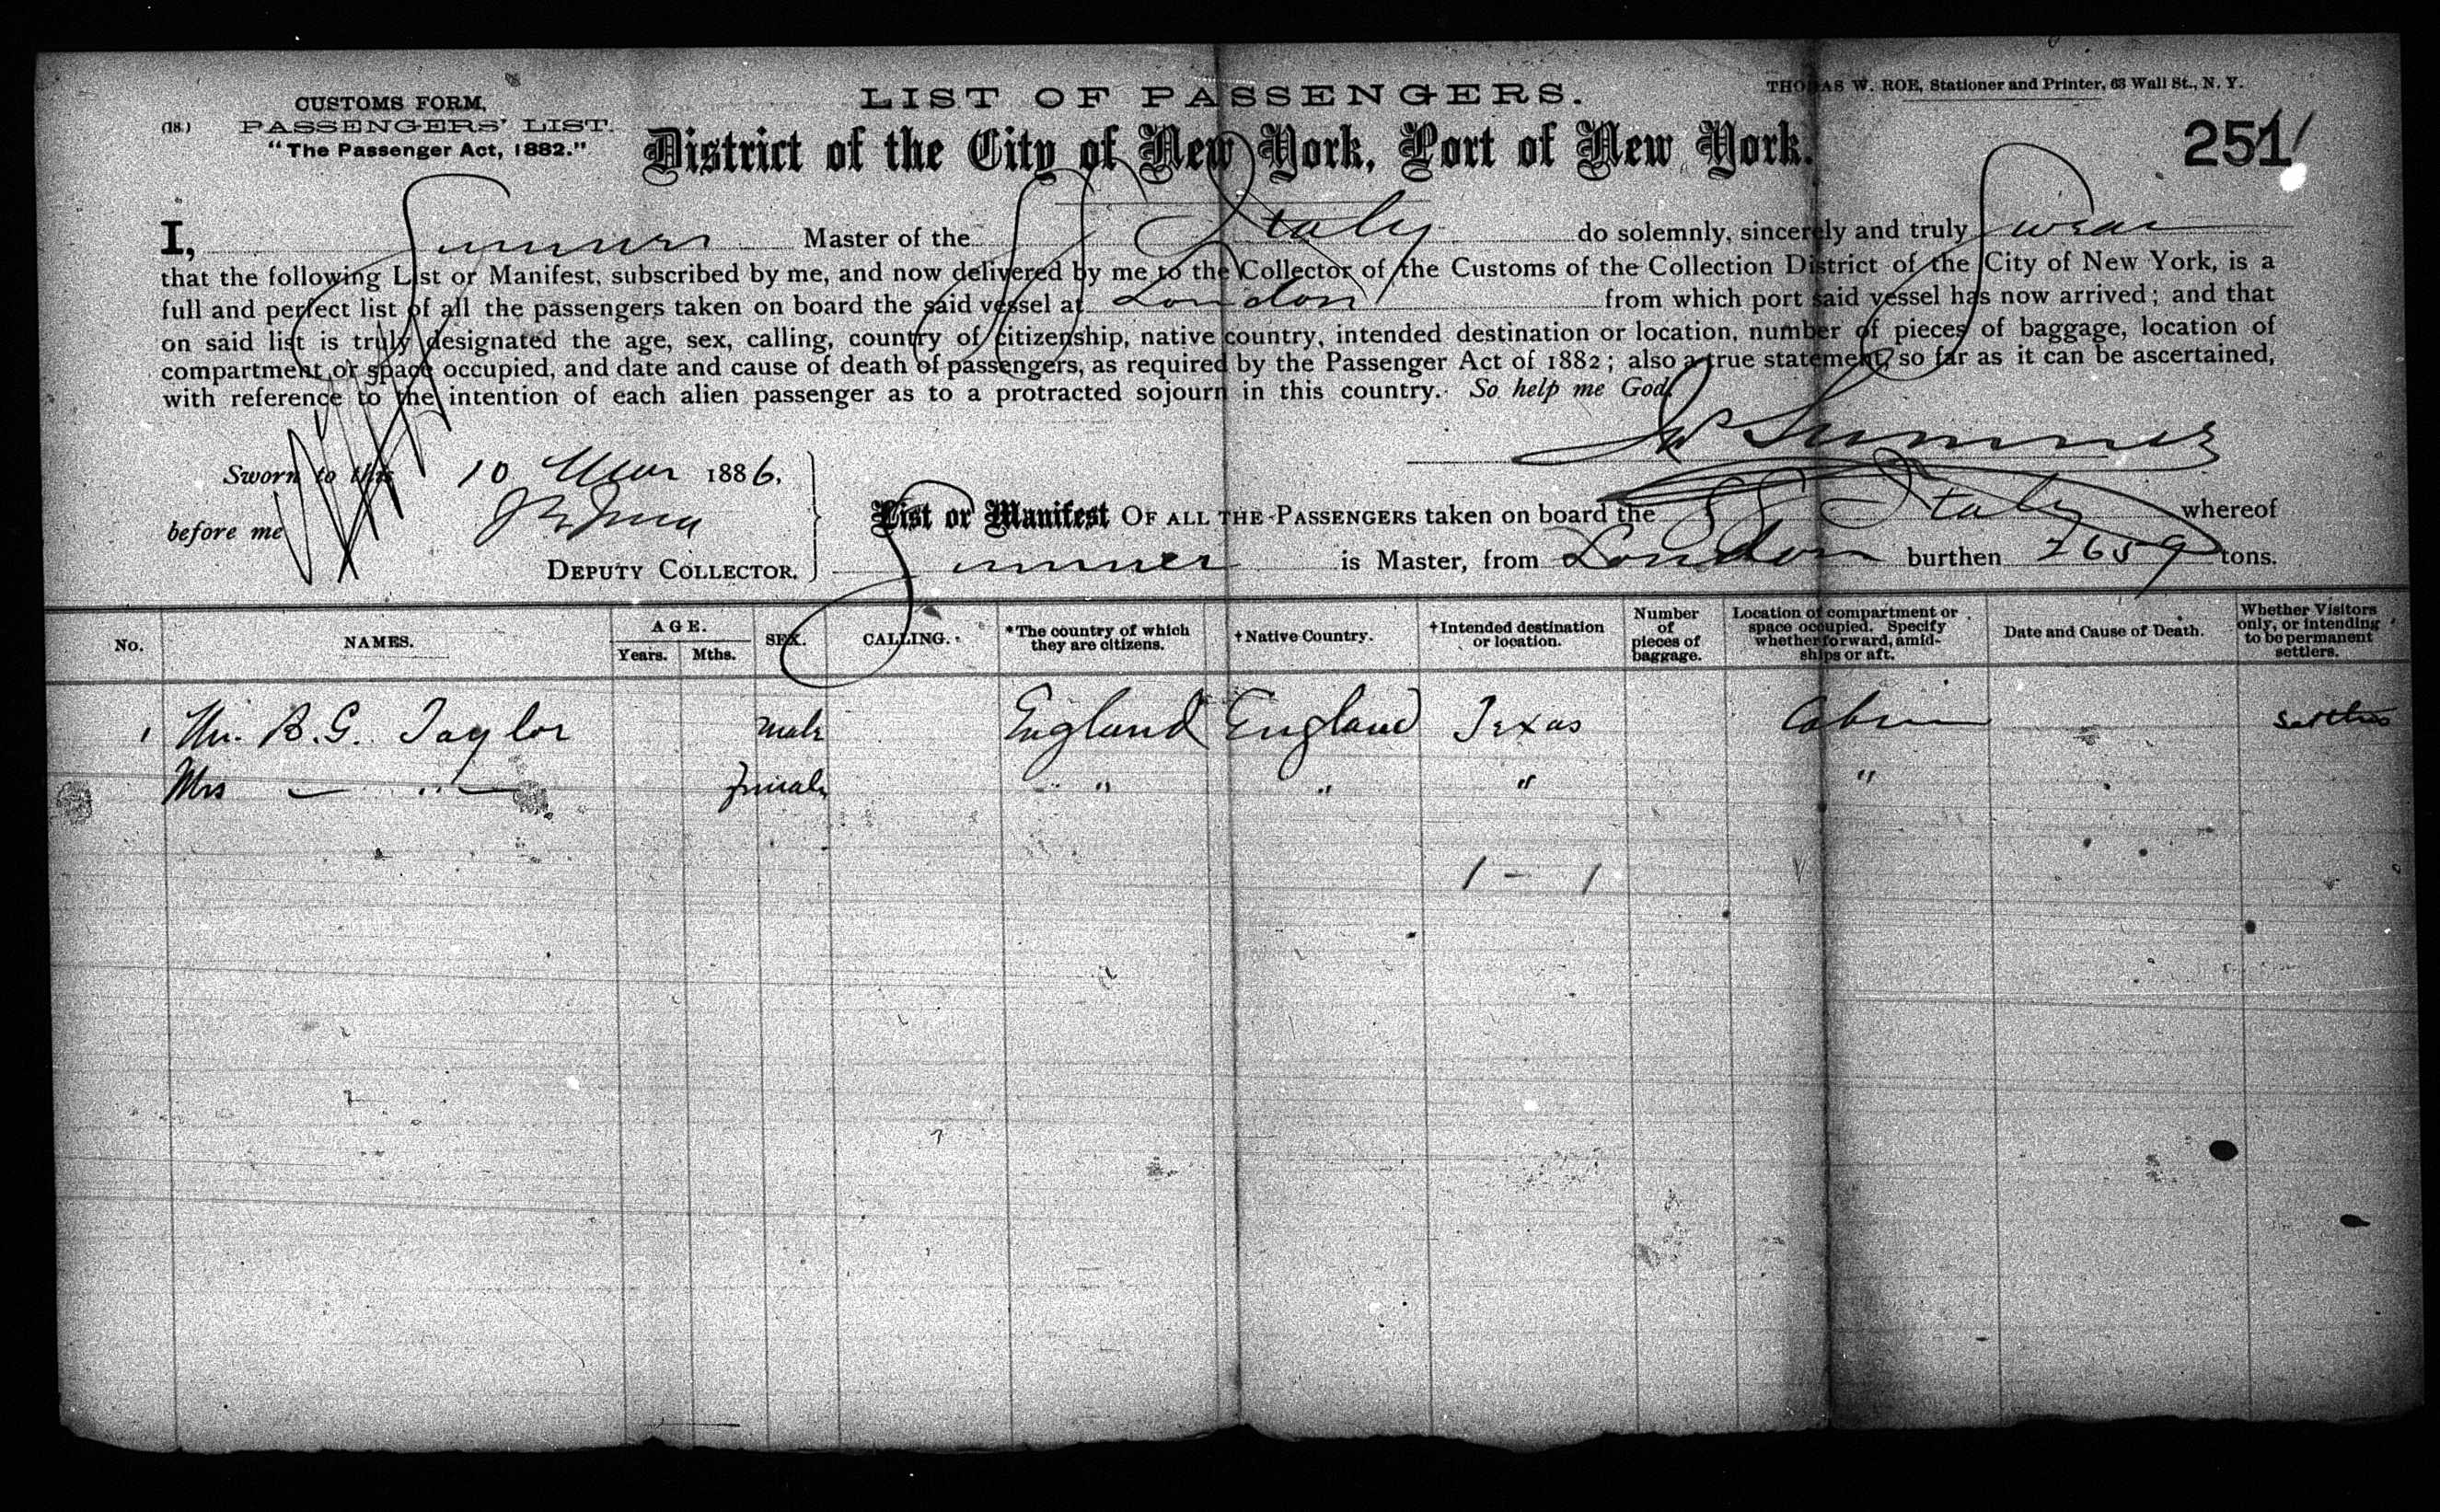 CUSTOMS FORM,
(18.) PASSENGERS' LIST.
"The Passenger Act, 1882."
LIST OF PASSENGERS.
THOMAS W. ROE, Stationer and Printer, 63 Wall St., N. Y.
District of the City of New York, Port of New York.
251
I, Sumner Master of the SS Italy do solemnly, sincerely and truly Swear
that the following List or Manifest, subscribed by me, and now delivered by me to the Collector of the Customs of the Collection District of the City of New York, is a
full and perfect list of all the passengers taken on board the said vessel at London from which port said vessel has now arrived; and that
on said list is truly designated the age, sex, calling, country of citizenship, native country, intended destination or location, number of pieces of baggage, location of
compartment or space occupied, and date and cause of death of passengers, as required by the Passenger Act of 1882; also a true statement, so far as it can be ascertained,
with reference to the intention of each alien passenger as to a protracted sojourn in this country. So help me God.
Sumner
Sworn to this 10 Mar 1886,
before me
DEPUTY COLLECTOR.
List or Manifest OF ALL THE PASSENGERS taken on board the SS Italy whereof
Sumner is Master, from London burthen 2659 tons.
No. NAMES. AGE. Years. Mths. SEX. CALLING. *The country of which they are citizens. †Native Country. †Intended destination or location. Number of pieces of baggage. Location of compartment or space occupied. Specify whether forward, amidships or aft. Date and Cause of Death. Whether Visitors only, or intending to be permanent settlers.
1 Mr. B. G. Taylor Male England England Texas Cabin Settlers
Mrs — " — Female " " " "
1 - 1